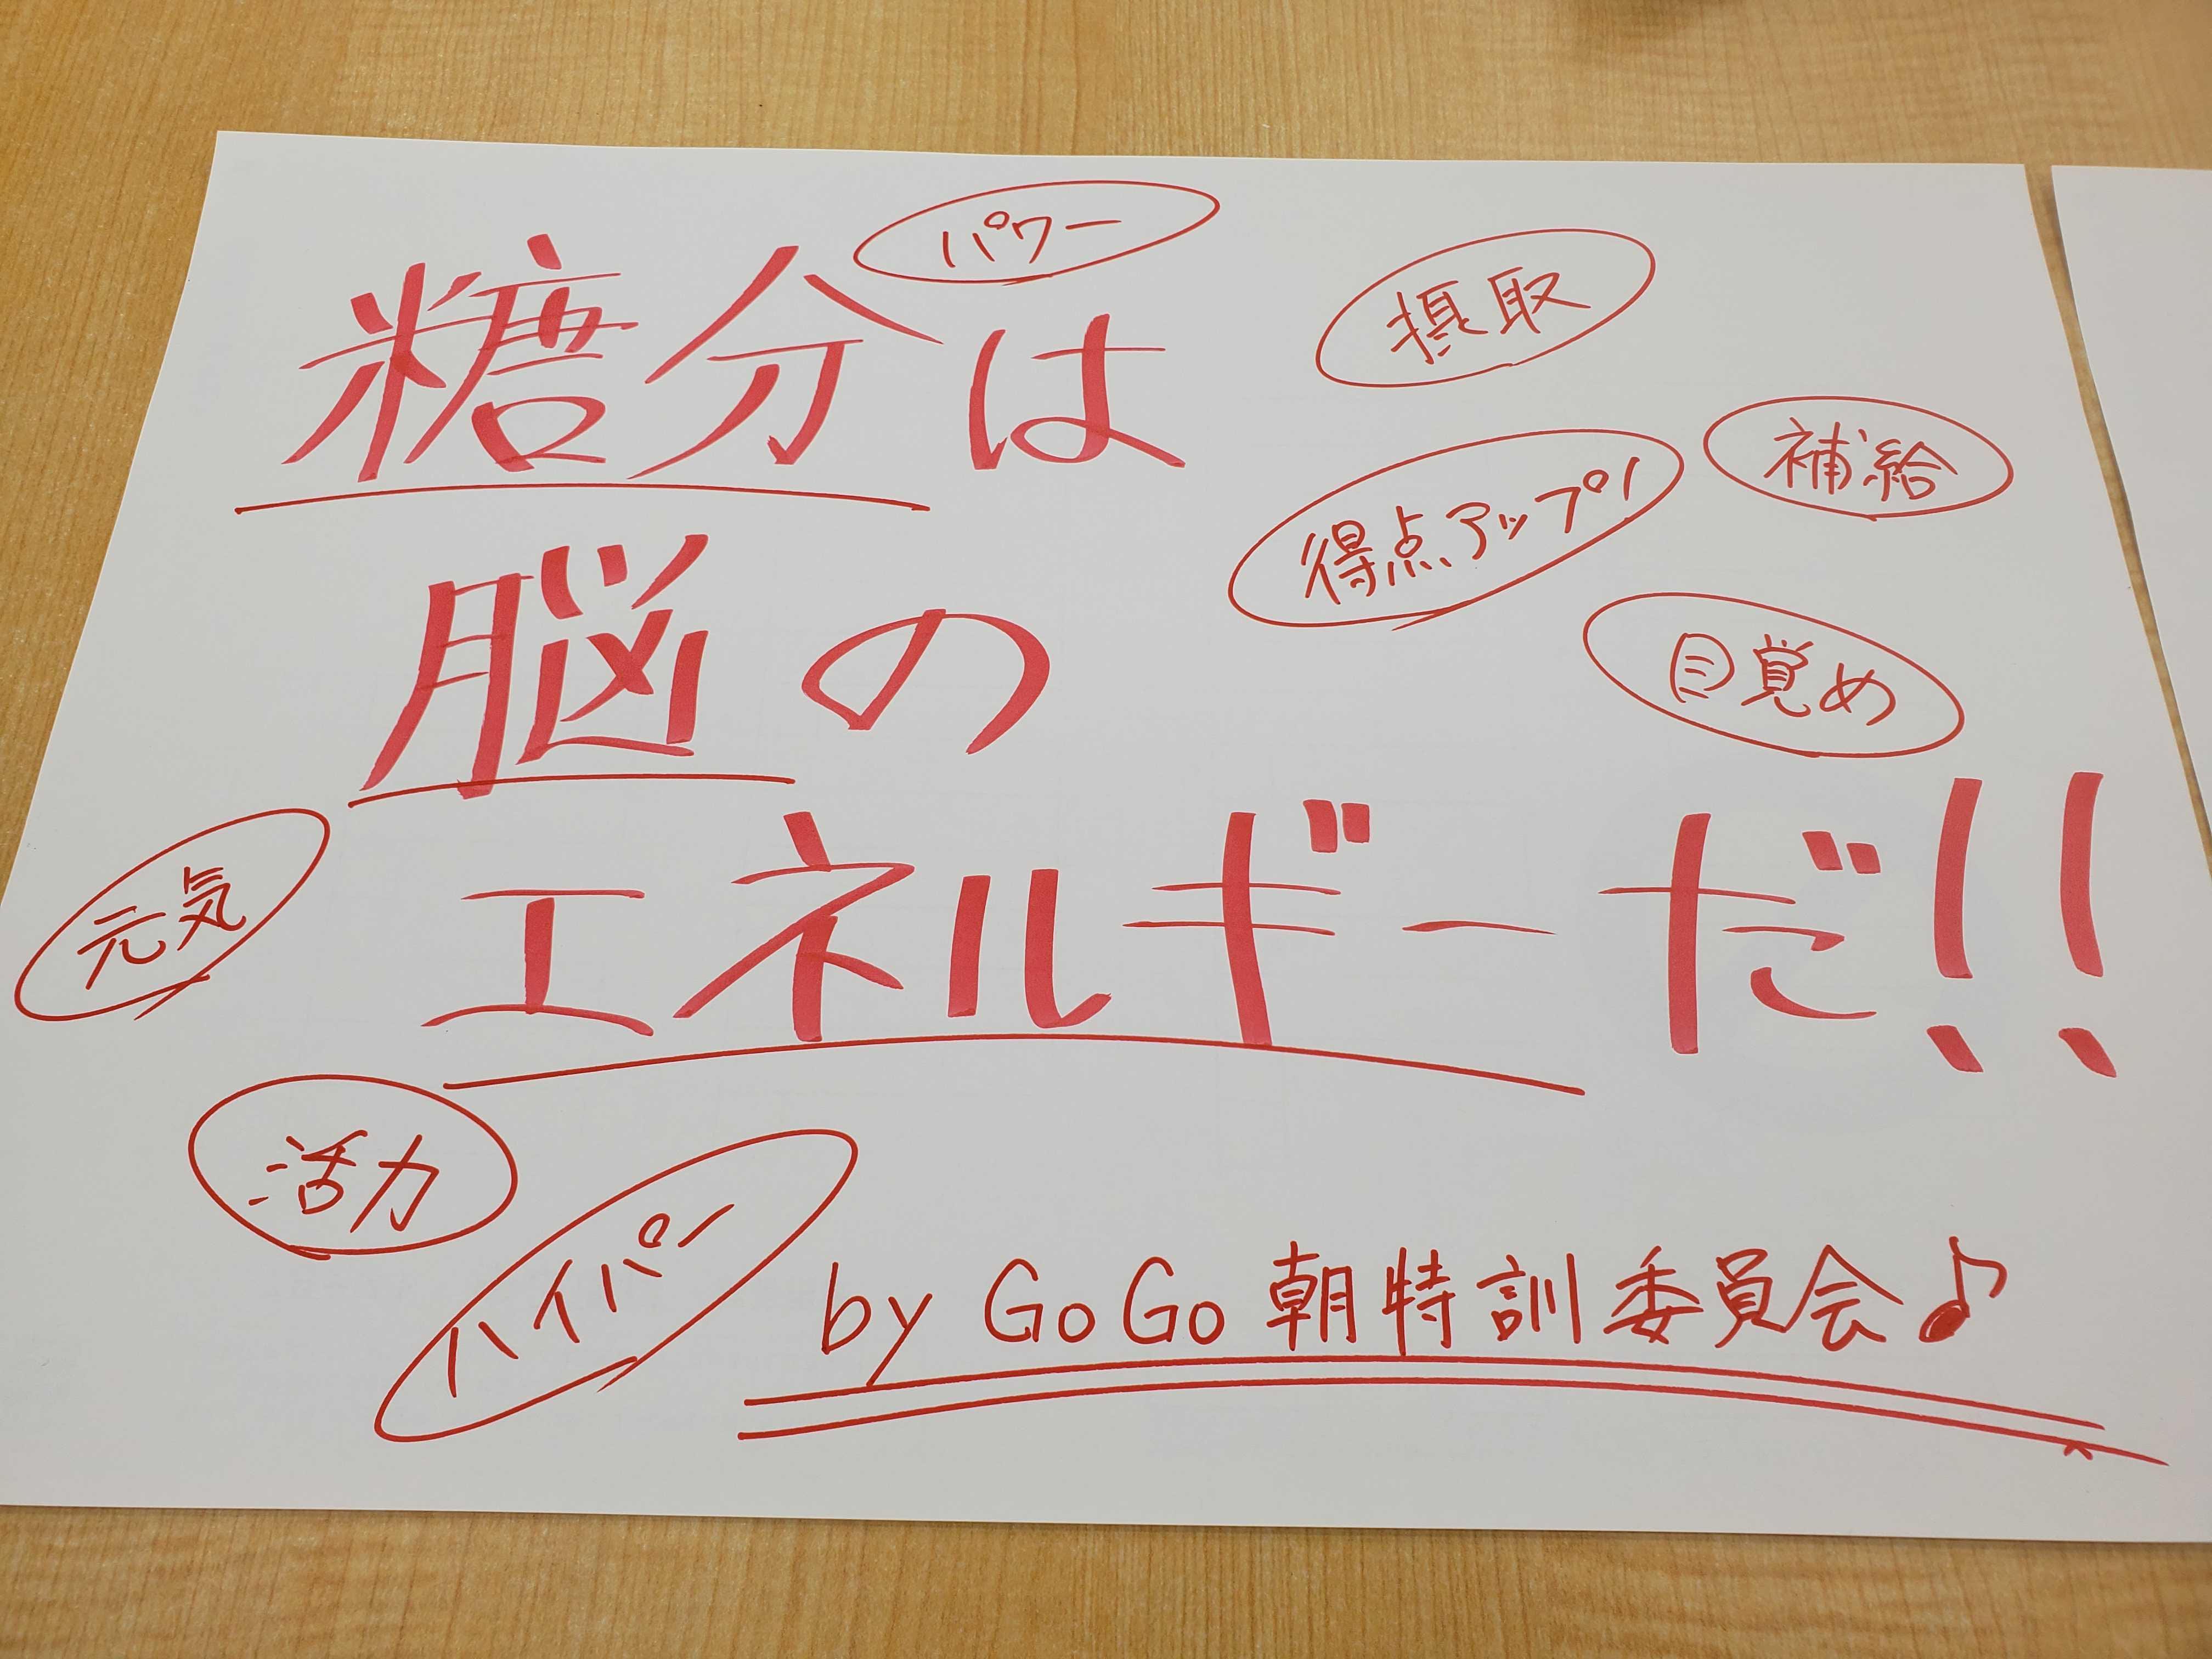 パワー
摂取
糖分は
補給
得点アップ!
脳の
目覚め
元気
エネルギーだ!!
活力
ハイパー
by GoGo朝特訓委員会♪